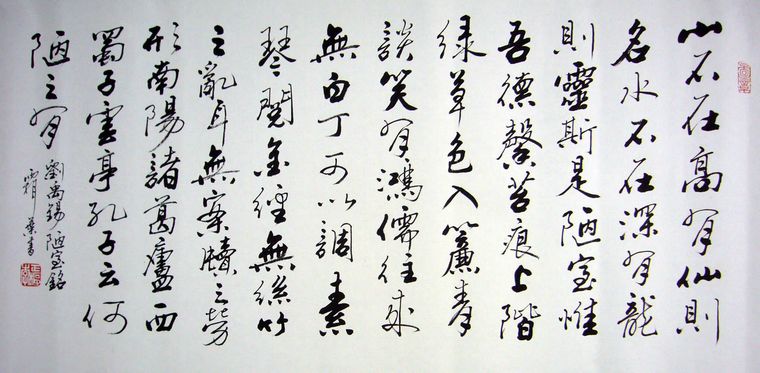 山不在高有仙則
名水不在深有龍
則靈斯是陋室惟
吾德馨苔痕上階
緑草色入簾青
談笑有鴻儒往來
無白丁可以調素
琴閱金經無絲竹
之亂耳無案牘之勞
形南陽諸葛廬西
蜀子雲亭孔子云何
陋之有
劉禹錫陋室銘
霜葉書